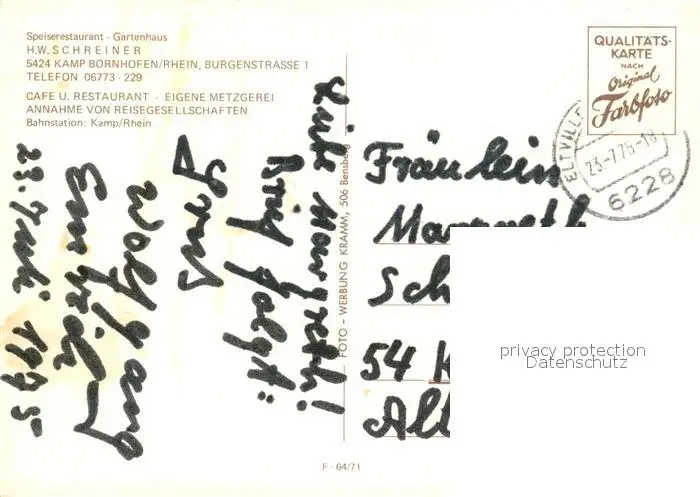 Speiserestaurant - Gartenhaus
H.W. SCHREINER
5424 KAMP BORNHOFEN/RHEIN, BURGENSTRASSE 1
TELEFON 06773 - 229
CAFE U. RESTAURANT - EIGENE METZGEREI
ANNAHME VON REISEGESELLSCHAFTEN
Bahnstation: Kamp/Rhein
Liebe Margreth!
Brief folgt!
Gruß
Wolfgang
23. Juli 1975
FOTO - WERBUNG KRAMM, 506 Bensberg
F - 64/71
QUALITÄTS-
KARTE
NACH
Original
Farbfoto
ELTVILLE
23.-7.75-18
6228
Fräulein
Sch
54 K
Alt
privacy protection
Datenschutz